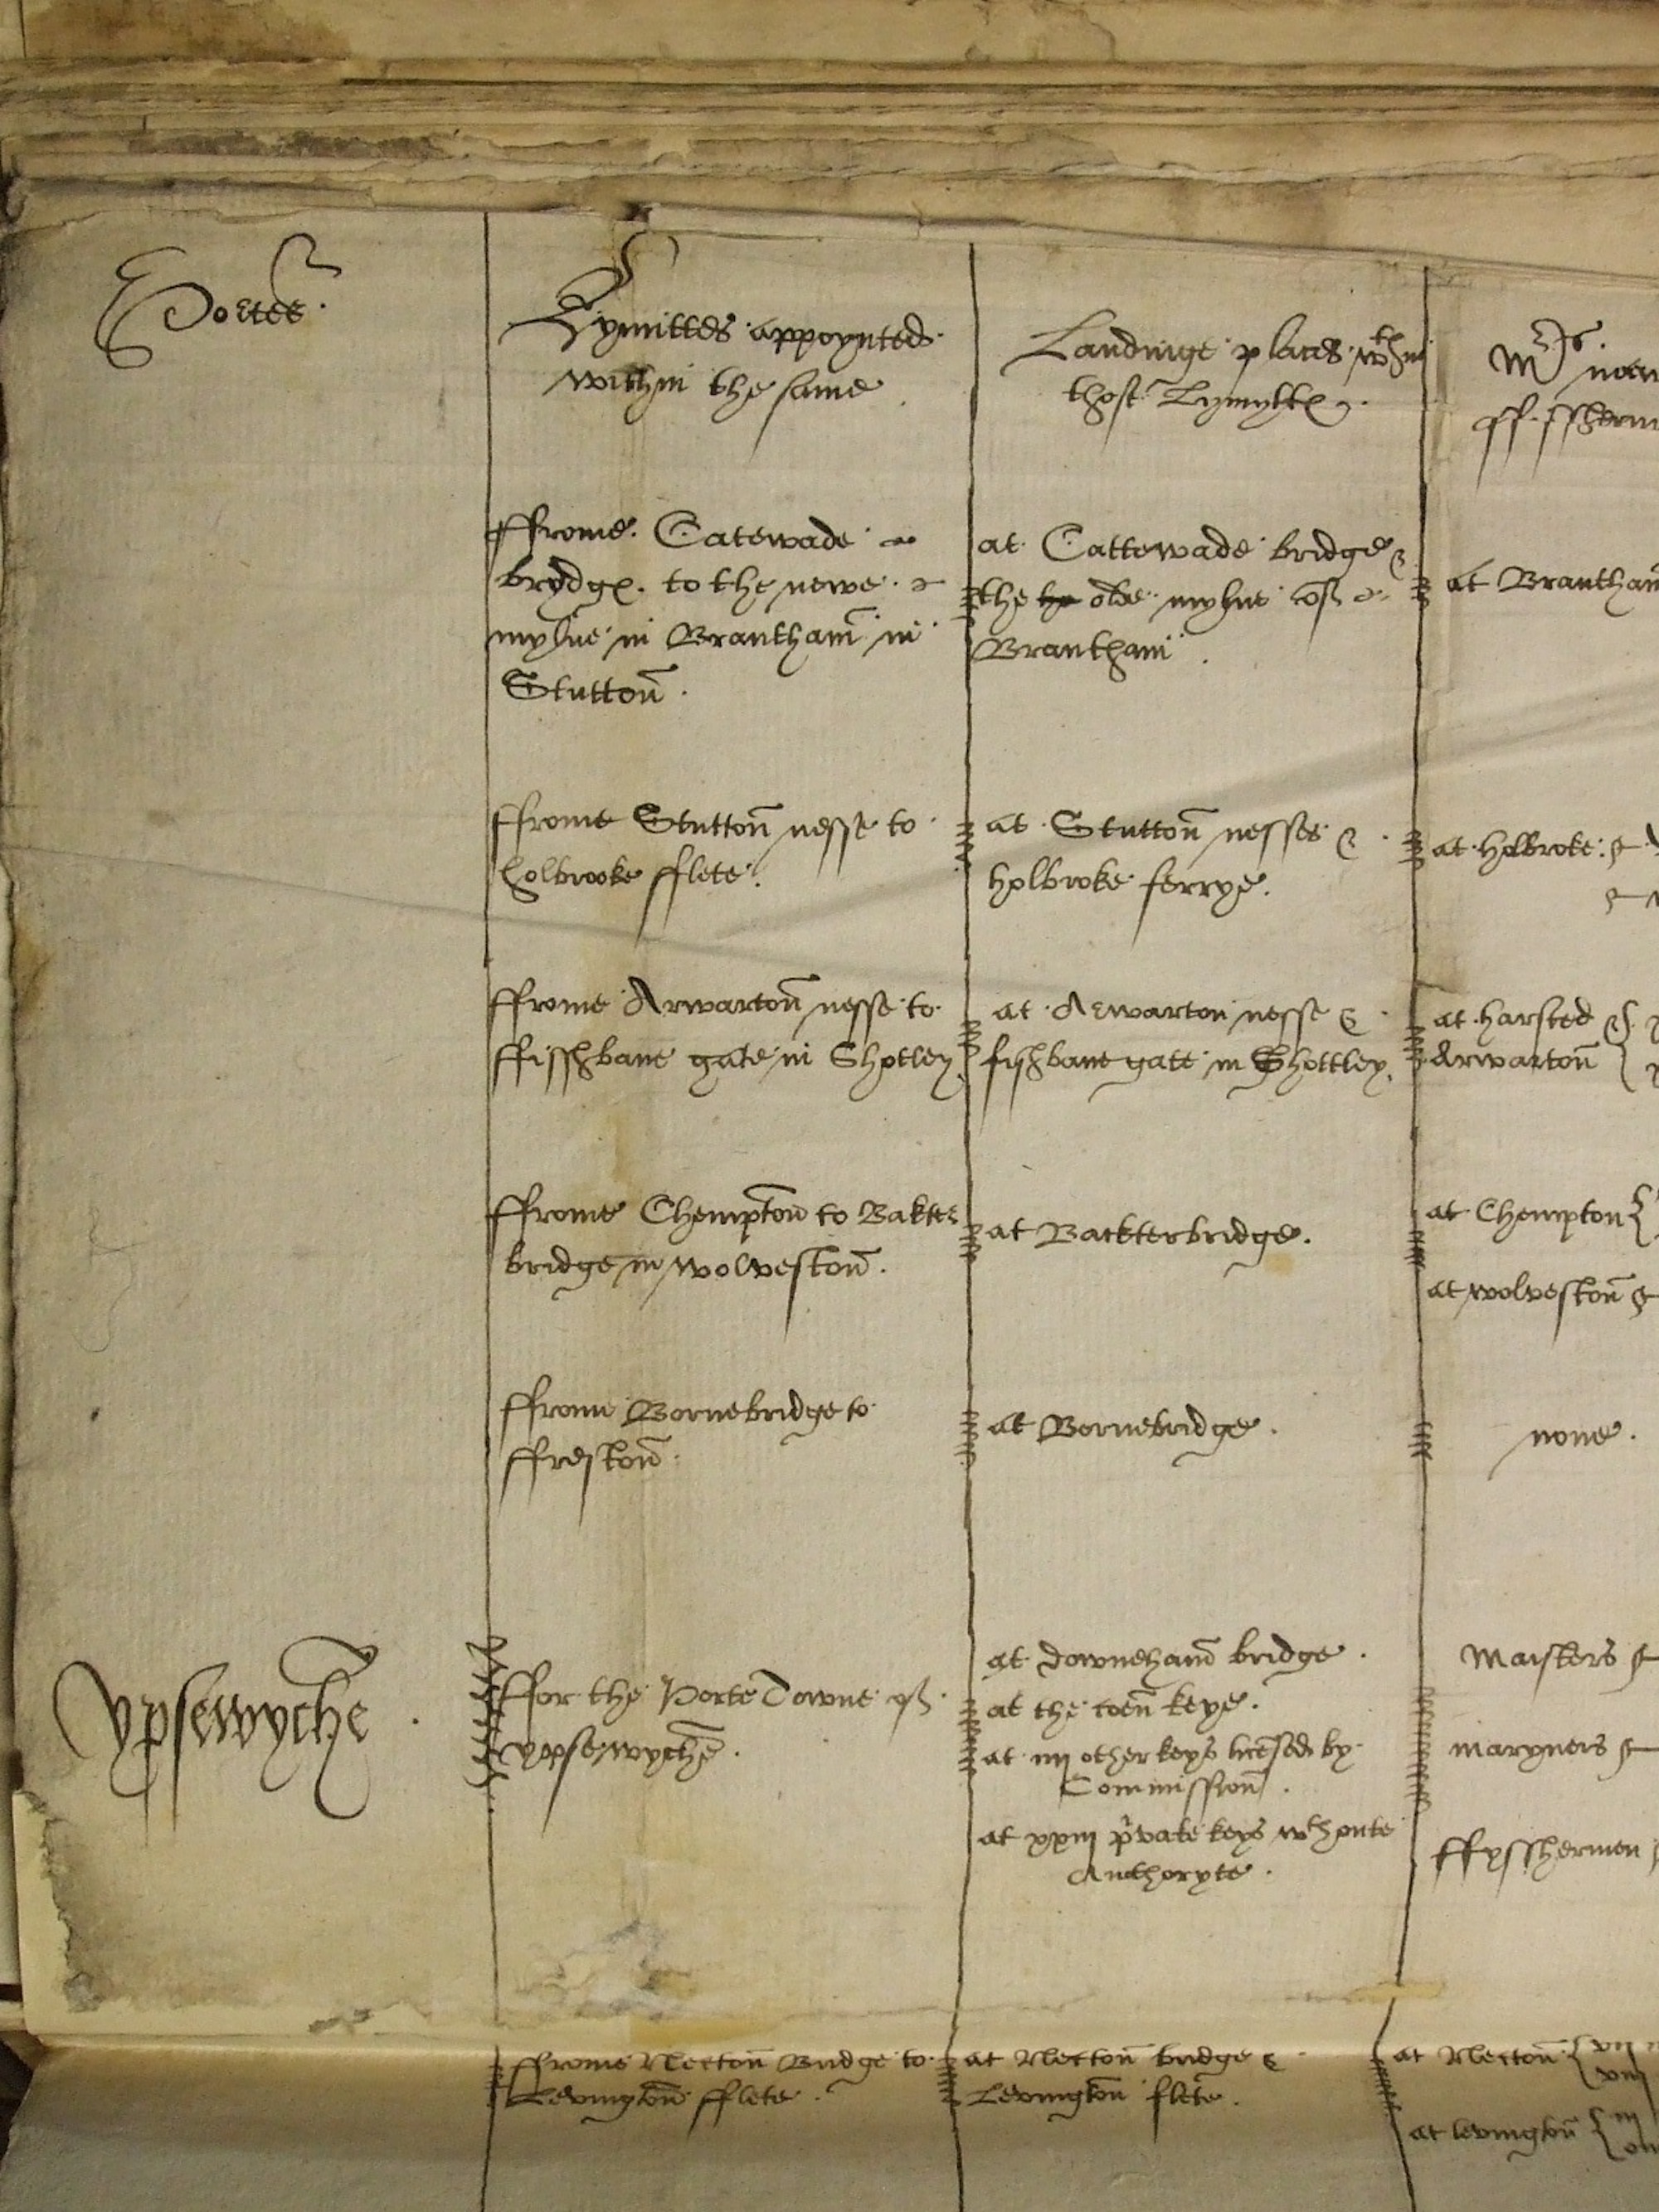 Portes.
Lymittes appoynted
within the same
Landinge places wthin
those Lymyttes.
Mrs
off ffisherm
ffrome Catewade
brydge to the newe
mylne in Brantham in
Stutton.
at Cattewade bridge &
the olde mylne of
Brantham.
at Brantham
ffrome Stutton nesse to
holbrooke fflete.
at Stutton nesses &
holbroke ferrye.
at holbroke
ffrome Arwarton nesse to
ffisshbane gate in Shotley
at Arwarton nesse &
fishbane gate in Shottley.
at harsted &
Arwarton
ffrome Chempton to Bakter
bridge in wolveston.
at Backterbridge.
at Chempton
at wolveston
ffrome Bornebridge to
ffreston.
at Bornebridge.
none.
Ypsewyche.
ffor the Porte Towne of
yppsewyche.
at Downeham bridge.
at the toen keye.
at iiij other keys licensed by
Commission.
at xxiij private keys wthoute
Authoryte.
Maisters
maryners
ffysshermen
ffrome Necton Bridge to
Levington fflete.
at Necton bridge &
Levington flete.
at Necton
at levington